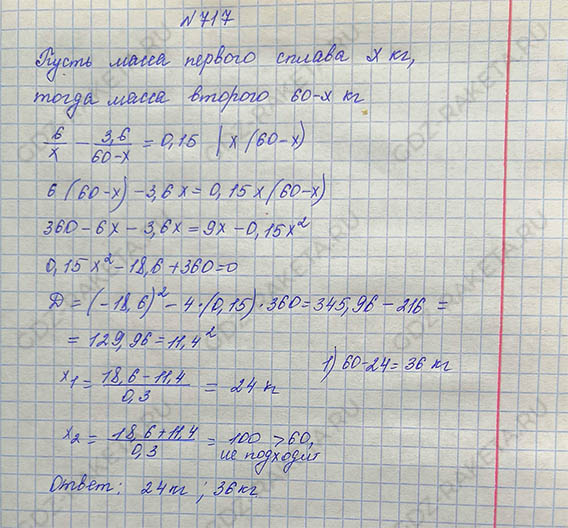 №717
Пусть масса первого сплава x кг,
тогда масса второго 60-x кг
6/x - 3,6/(60-x) = 0,15 | x(60-x)
6(60-x) - 3,6x = 0,15x(60-x)
360 - 6x - 3,6x = 9x - 0,15x²
0,15x² - 18,6 + 360 = 0
D = (-18,6)² - 4·(0,15)·360 = 345,96 - 216 =
= 129,96 = 11,4²
1) 60-24 = 36 кг
x₁ = (18,6 - 11,4)/0,3 = 24 кг
x₂ = (18,6 + 11,4)/0,3 = 100 > 60,
не подходит
Ответ: 24кг ; 36кг
GDZ-RAKETA.RU